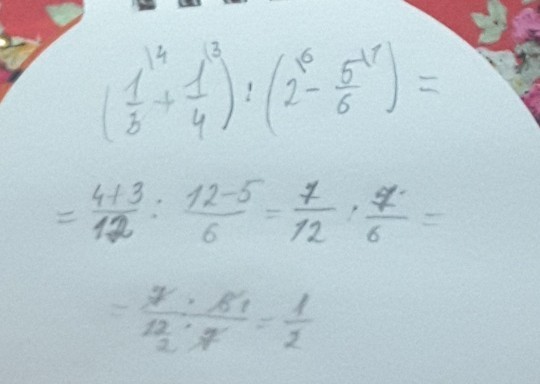 (1/3\4 + 1/4\3) : (2\6 - 5/6\1) =
= 4+3/12 : 12-5/6 = 7/12 : 7/6 =
= 7 · 6 1/12 2 · 7 = 1/2